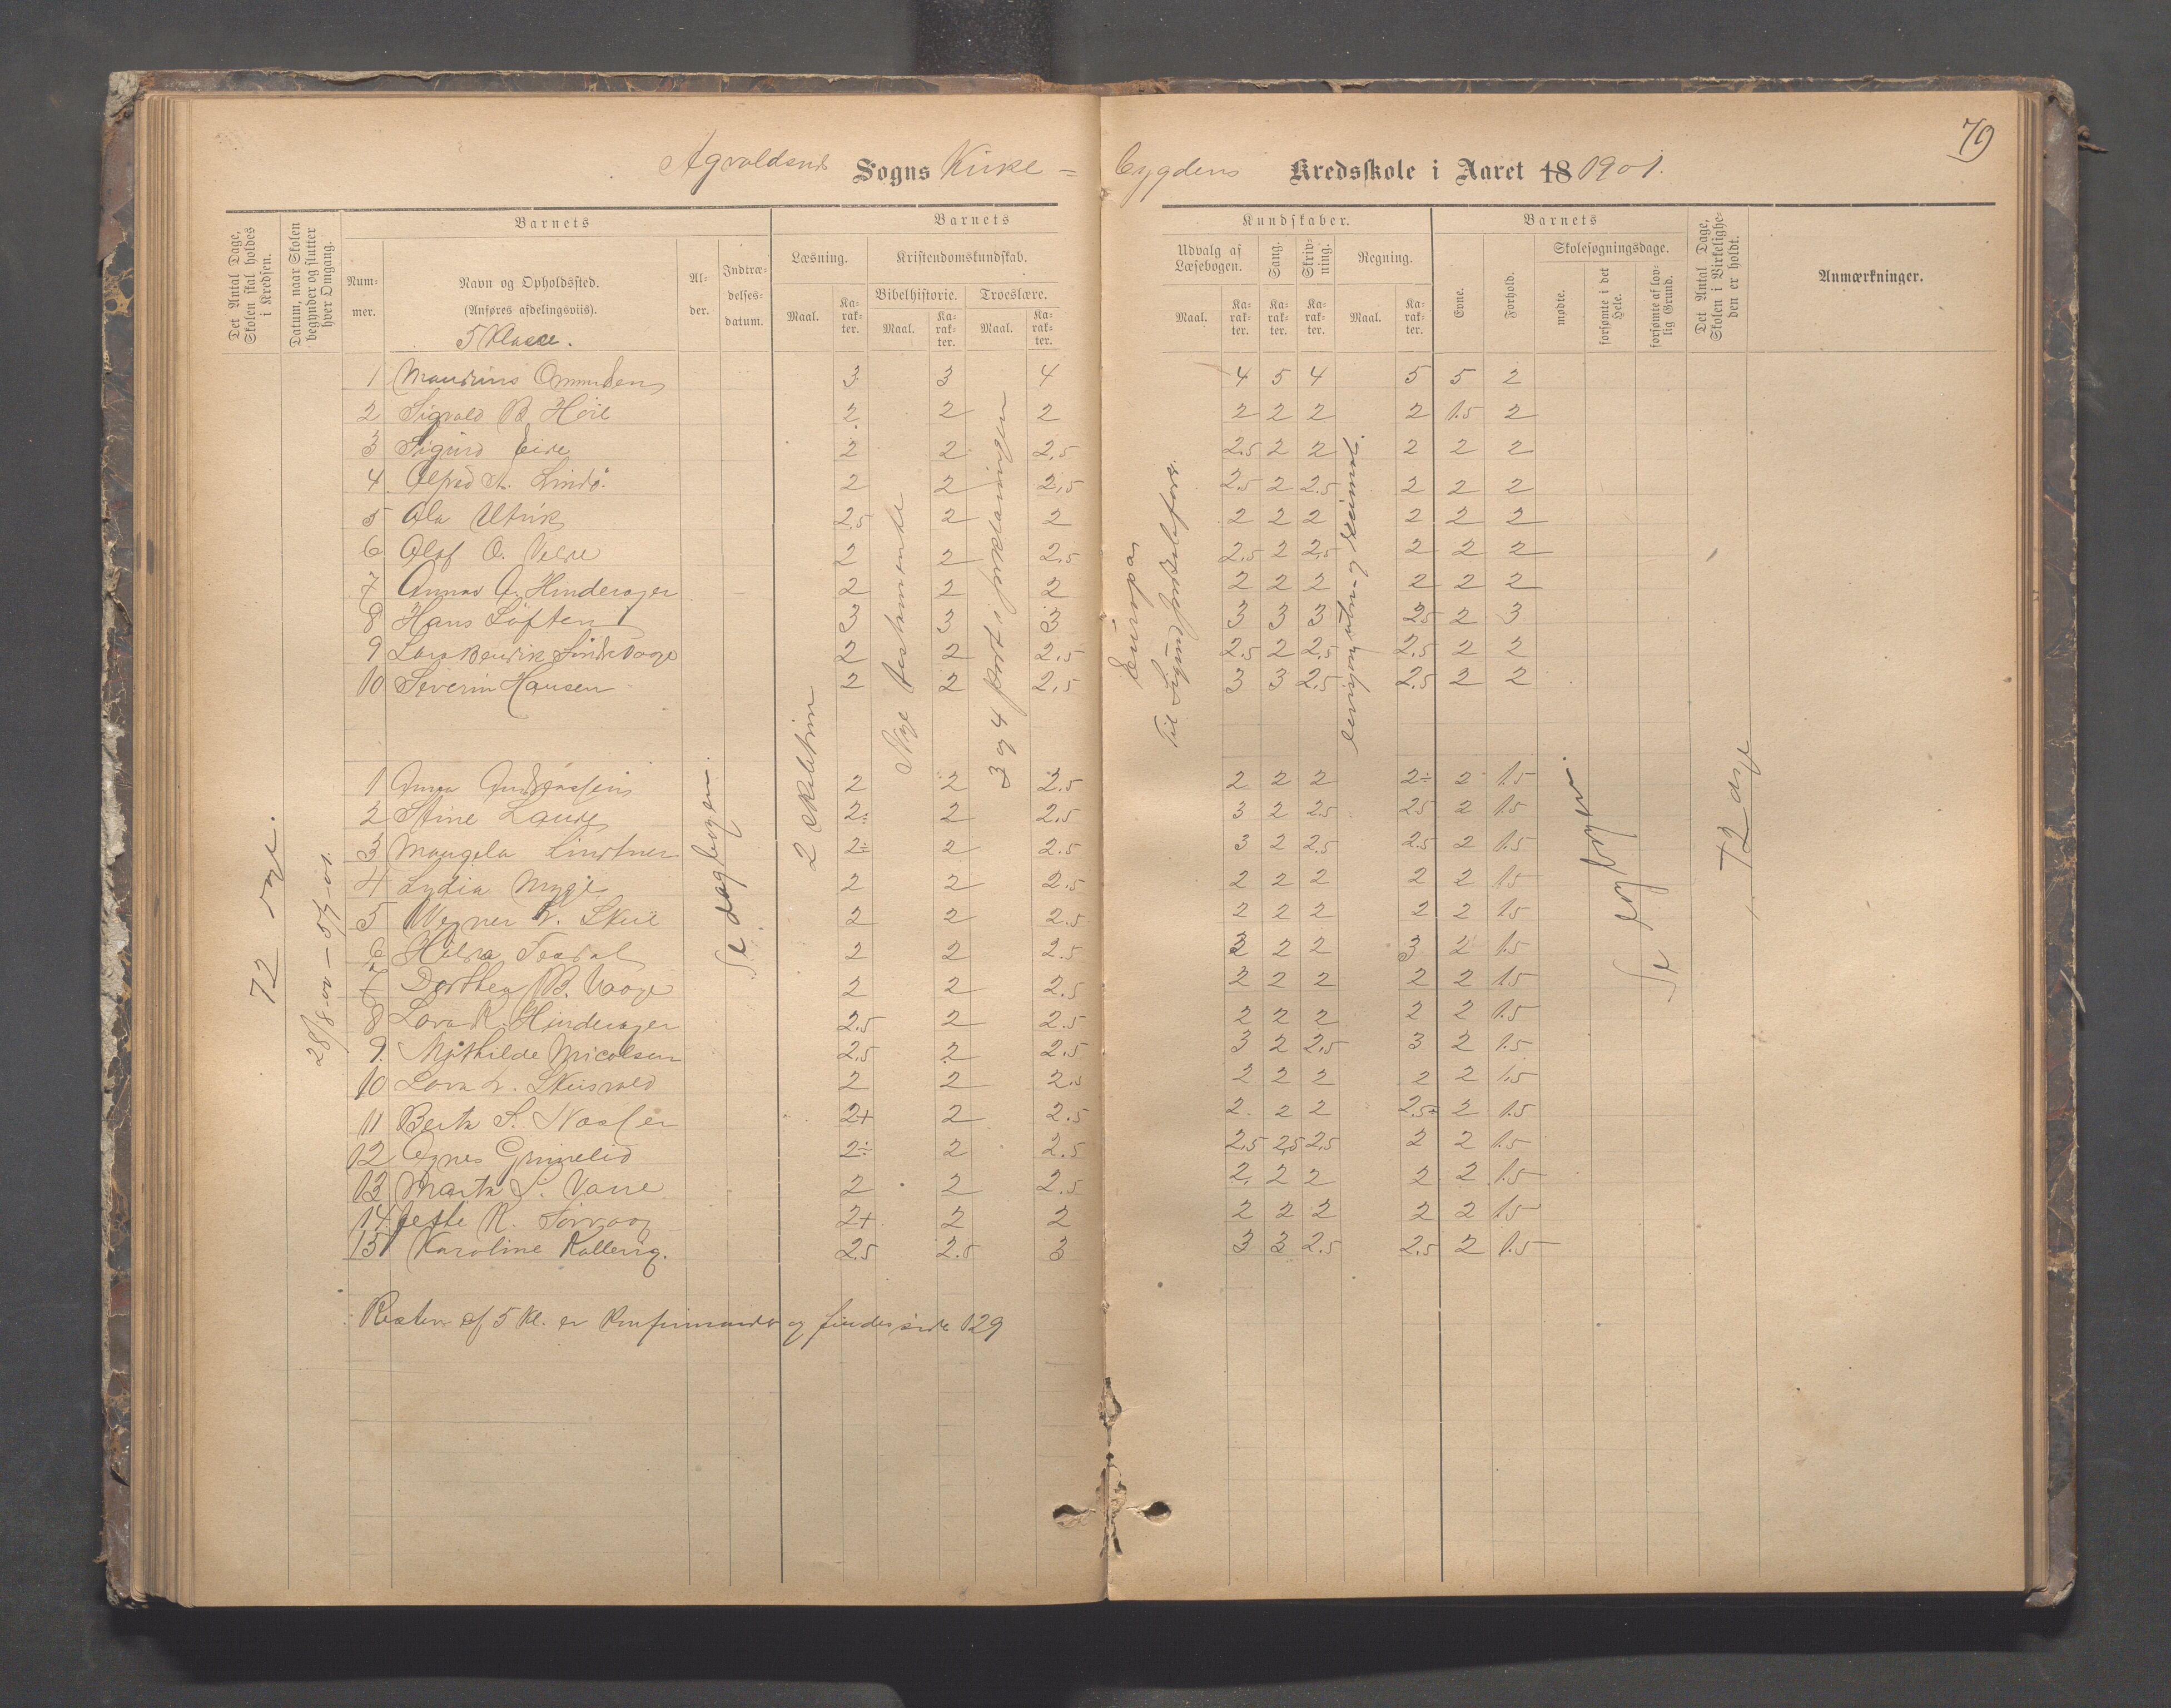 79
Agvaldsnes Sogns Kirke = bygdens Kredsskole i Aaret 18 1901.
Det Antal Dage, Skolen skal holdes i Kredsen.
Datum, naar Skolen begynder og slutter hver Omgang.
Barnets
Nummer.
Navn og Opholdssted.
(Anføres afdelingsviis).
5 Klasse.
Alder.
Indtrædelsesdatum.
Barnets Kundskaber.
Læsning.
Maal.
Karakter.
Kristendomskundskab.
Bibelhistorie.
Maal.
Karakter.
Troeslære.
Maal.
Karakter.
Udvalg af Læsebogen.
Maal.
Karakter.
Sang.
Karakter.
Skrivning.
Karakter.
Regning.
Maal.
Karakter.
Barnets
Evne.
Forhold.
Skolesøgningsdage.
mødte.
forsømte i det Hele.
forsømte af lovlig Grund.
Det Antal Dage, Skolen i Virkeligheden er holdt.
Anmærkninger.
1 Ommundsen 3 3 4 4 5 4 5 5 2
2 Sigvald B. 2 2 2 2 2 2 2 1.5 2
3 Sigurd Eide 2 2 2,5 2.5 2 2 2 2 2
4 Alfred A. Lindø 2 2 2,5 2.5 2 2.5 2 2 2
5 Ola Utvik 2.5 2 2 2 2 2 2 2 2
6 Olaf O. Velde 2 2 2,5 2,5 2 2,5 2 2 2
7 Hinderager 2 2 2 2 2 2 2 2 2
8 Hans Løften 3 3 3 3 3 3 2.5 2 3
9 Lars 2 2 2,5 2.5 2 2.5 2,5 2 2
10 Severin Hansen 2 2 2,5 3 3 2,5 2.5 2 2
1 Anna 2 2 2.5 2 2 2 2÷ 2 1.5
2 Stine Lande 2÷ 2 2,5 3 2 2.5 2.5 2 1.5
3 Lindtner 2÷ 2 2.5 3 2 2.5 2.5 2 1.5
4 Lydia Myge 2 2 2.5 2 2 2 2 2 1.5
5 2 2 2.5 2 2 2 2 2 1.5
6 2 2 2.5 3 2 2 3 2 1.5
7 Dorthea B. Vaage 2 2 2.5 2 2 2 2 2 1.5
8 Lova R. Hinderager 2,5 2 2.5 2 2 2 2 2 1.5
9. Mathilde Nicolsen 2,5 2 2.5 3 2 2,5 3 2 1.5
10 Lova 2 2 2.5 2 2 2 2 2 1,5
11 Berta S. 2+ 2 2.5 2 2 2 2.5+ 2 1.5
12 Agnes 2÷ 2 2.5 2,5 2,5 2,5 2 2 1.5
13 Marta S. 2 2 2.5 2 2 2 2 2 1.5
14 R. Sørvaag 2+ 2 2 2 2 2 2 2 1.5
15 Karoline Kallevig. 2.5 2.5 3 3 3 2.5 2.5 2 1.5
72 dage.
28/8-00 – 5/7-01.
Se dagbogen.
2
Nye testamente
3 og 4 part i forklaringen
Europa
Til
Se dagbogen
72 dage
Resten af 5 kl. er Konfirmander og findes side 129